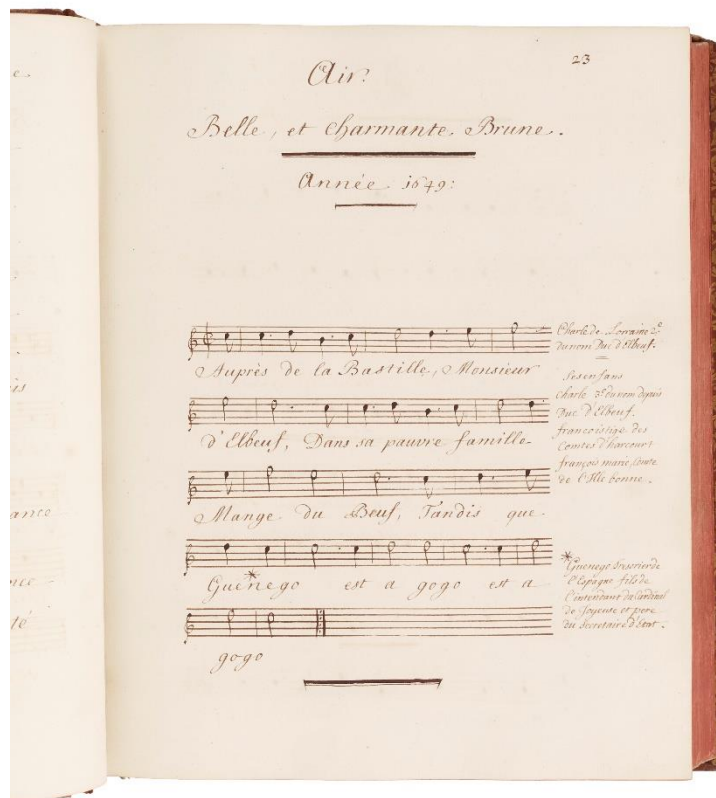 23
Air.
Belle, et Charmante Brune.
Année 1649:
Auprés de la Bastille, Monsieur
d'Elbeuf, Dans sa pauvre famille
Mange du Beuf, Tandis que
Guénego est a gogo est a
gogo
Charle de Lorraine 2e
du nom Duc d'Elbeuf.
Ses enfans
Charle 3e du nom depuis
Duc d'Elbeuf.
francois tige des
Comtes d'harcourt
françois marie, Comte
de l'Isle bonne.
* Guenego Tresorier de
l'Espagne fils de
l'intendant du Cardinal
de Joyeuse et pere
du Secretaire d'Etat.
e
is
ance
nce
té